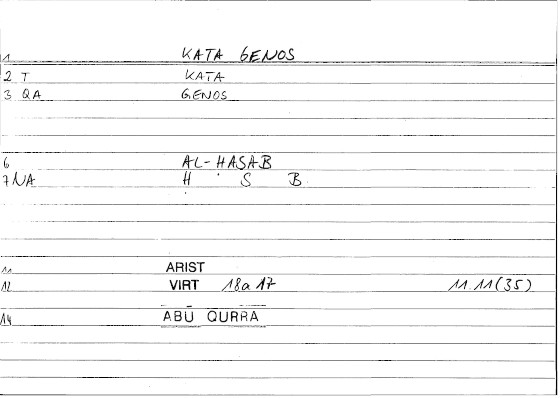 1 KATA GENOS
2 T KATA
3 QA GENOS
6 AL-ḤASAB
7 NA Ḥ S B
11 ARIST
12 VIRT 18a17 11.11(35)
14 ABŪ QURRA